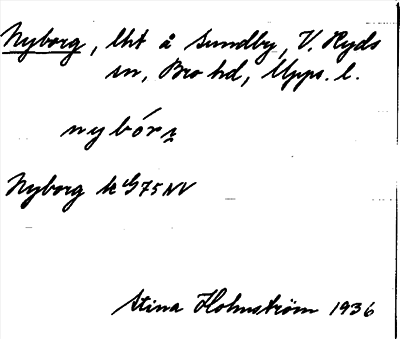 Nyborg, lht å Sundby, V. Ryds
sn, Bro hd, Upps. l.
nybórg
Nyborg k G75NV
Stina Holmström 1936